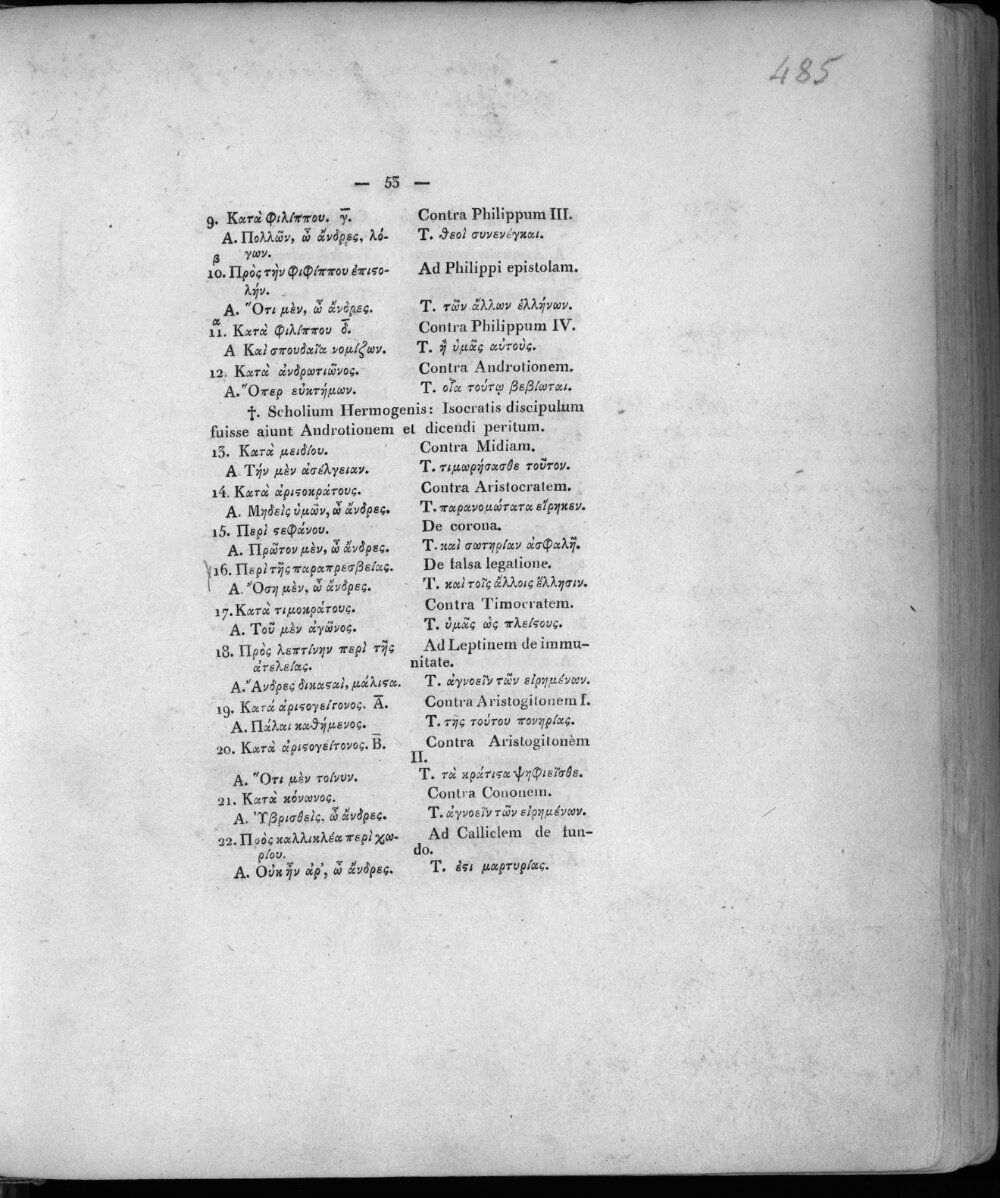 485
— 53 —
9. Κατὰ φιλίππου. γ̅. Contra Philippum III.
Α. Πολλῶν, ὦ ἄνδρες, λό- Τ. θεοὶ συνενέγκαι.
β γων.
10. Πρὸς τὴν φιφίππου ἐπιϛο- Ad Philippi epistolam.
λήν.
Α. Ὅτι μὲν, ὦ ἄνδρες. Τ. τῶν ἄλλων ἑλλήνων.
α
11. Κατὰ φιλίππου δ̅. Contra Philippum IV.
Α Καὶ σπουδαῖα νομίζων. Τ. ἢ ὑμᾶς αὐτούς.
12. Κατὰ ἀνδρωτιῶνος. Contra Androtionem.
Α. Ὅπερ εὐκτήμων. Τ. οἷα τούτῳ βεβίωται.
†. Scholium Hermogenis: Isocratis discipulum
fuisse ajunt Androtionem et dicendi peritum.
13. Κατὰ μειδίου. Contra Midiam.
Α. Τήν μὲν ἀσέλγειαν. Τ. τιμωρήσασθε τοῦτον.
14. Κατὰ ἀριϛοκράτους. Contra Aristocratem.
Α. Μηδεὶς ὑμῶν, ὦ ἄνδρες. Τ. παρανομώτατα εἴρηκεν.
15. Περὶ ϛεφάνου. De corona.
Α. Πρῶτον μὲν, ὦ ἄνδρες. Τ. καὶ σωτηρίαν ἀσφαλῆ.
16. Περὶ τῆς παραπρεσβείας. De falsa legatione.
Α. Ὅση μὲν, ὦ ἄνδρες. Τ. καὶ τοῖς ἄλλοις ἕλλησιν.
17. Κατὰ τιμοκράτους. Contra Timocratem.
Α. Τοῦ μὲν ἀγῶνος. Τ. ὑμᾶς ὡς πλείϛους.
18. Πρὸς λεπτίνην περὶ τῆς Ad Leptinem de immu-
ἀτελείας. nitate.
Α. Ἄνδρες δικαϛαὶ, μάλιϛα. Τ. ἀγνοεῖν τῶν εἰρημένων.
19. Κατά ἀριϛογείτονος. Α̅. Contra Aristogitonem I.
Α. Πάλαι καθήμενος. Τ. τῆς τούτου πονηρίας.
20. Κατὰ ἀριϛογείτονος. Β̅. Contra Aristogitonem
II.
Α. Ὅτι μὲν τοίνυν. Τ. τὰ κράτιϛα ψηφιεῖσθε.
21. Κατὰ κόνωνος. Contra Cononem.
Α. Ὑβρισθείς, ὦ ἄνδρες. Τ. ἀγνοεῖν τῶν εἰρημένων.
22. Πρὸς καλλικλέα περὶ χω- Ad Calliclem de fun-
ρίου. do.
Α. Οὐκ ἦν ἀρ', ὦ ἄνδρες. Τ. ἐϛι μαρτυρίας.